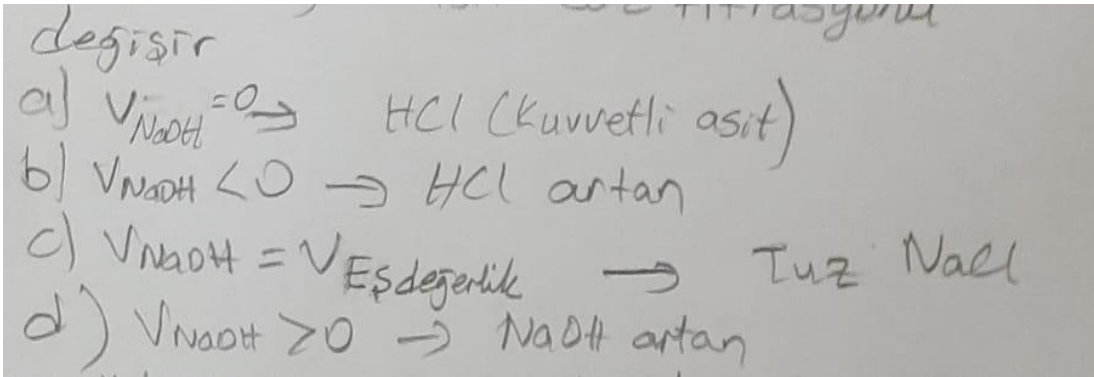 titrasyonu
değişir
a) V NaOH =0 → HCl (Kuvvetli asit)
b) V NaOH <0 → HCl artan
c) V NaOH = V Eşdeğerlik → Tuz NaCl
d) V NaOH >0 → NaOH artan